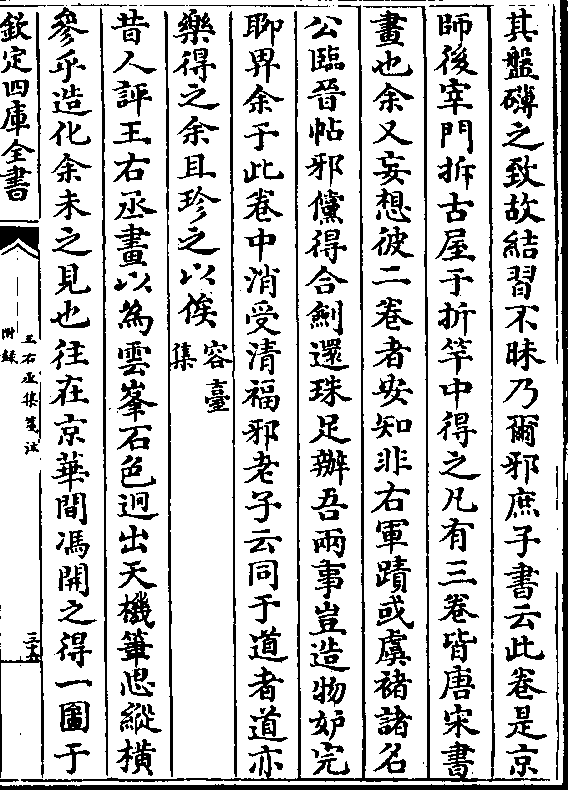 其盤礴之致故結習不昧乃爾邪庶子書云此卷是京
師後宰門拆古屋于折竿中得之凡有三卷皆唐宋書
畫也余又妄想彼二卷者安知非右軍蹟或虞褚諸名
公臨晉帖邪儻得合劍還珠足辦吾兩事豈造物妒完
聊畀余于此卷中消受清福邪老子云同于道者道亦
樂得之余且珍之以俟容臺集
昔人評王右丞畫以為雲峯石色迥出天機筆思縱橫
參乎造化余未之見也往在京華聞馮開之得一圖于
欽定四庫全書
王右丞集箋注
附錄
三十五